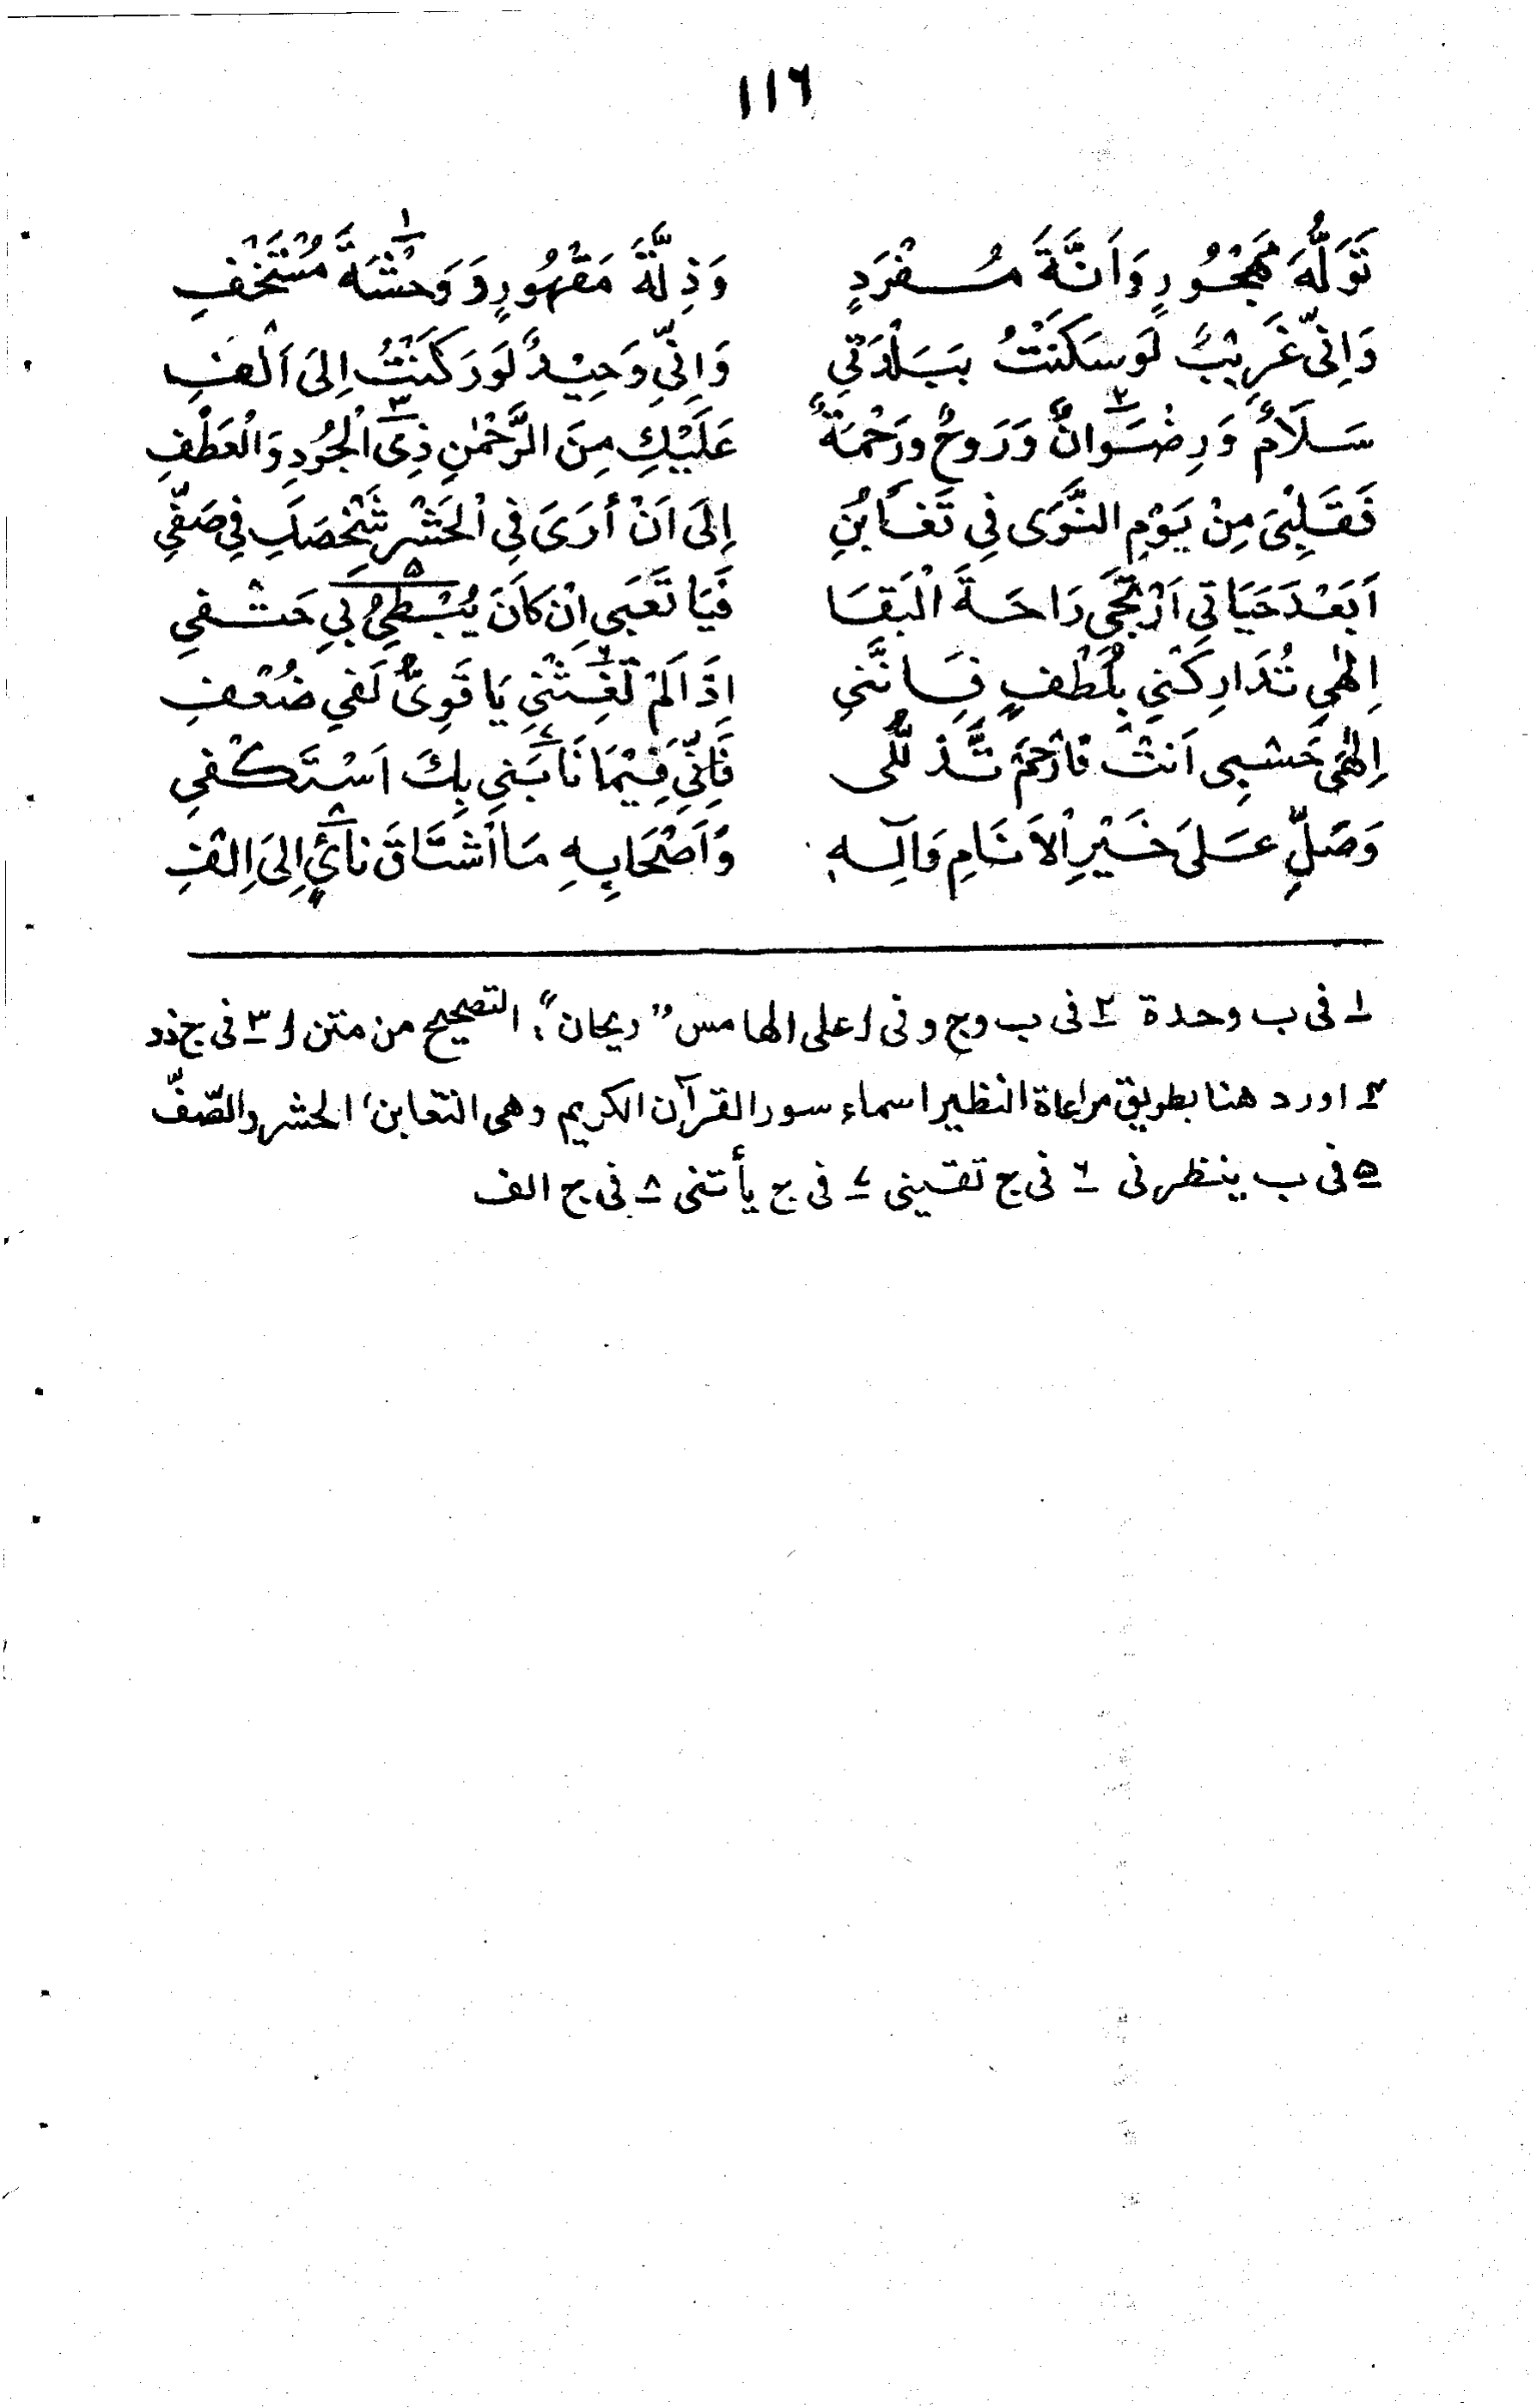 ١١٦
تَوَلُّهَ مَهْجُورٍ وَاَنَّةَ مُنْفَرَدٍ وَذِلَّةَ مَقْهُورٍ وَوَحْشَةَ١ مُسْتَخْفِ
وَاِنّي غَرِيْبٌ لَوسَكَنْتُ بِبَلْدَتِي وَاِنِّي وَحِيْدٌ لَو رَكَنْتُ اِلىَ اَلْفِ
سَلَامٌ وَرِضْوَانٌ٢ وَرَوحٌ ورَحْمَةٌ عَلَيْكِ مِنَ الرَّحْمٰنِ ذِى٣ الْجُودِ وَالْعَطْفِ
فَقَلْبِيَ مِنْ يَوْمِ النَّوَى فِي تَغَابُنِ اِلىَ اَنْ أرَىَ فِي الْحَشْرِ شَخْصَكِ فِي صَفِّي
اَبَعْدَ حَيَاتِي اَرْتَجَى رَاحَةَ الْبَقَا فَيَا تَعَبَي اِنْ كاَنَ يُبْطِئُ بِي٥ حَتْفِي
اِلٰهِي تُدَارِكْنِي بِلُطْفٍ فَاِنَّنِي اِذَا لَمْ تُغِثْنِي٦ يَا قَوِىُّ لَفي ضُعْفِ
اِلٰهَى حَسْبِى اَنْتَ فَارْحَمْ تَذَلُّلى فَاِنِّي فِيْمَا نَابَنِي٧ بِكَ اَسْتَكْفِي
وَصَلِّ عَلىَ خَيْرِ اْلاَنَامِ وَآلِهِ وَاَصْحَابِهِ مَا اشْتَاقَ نائٍ٨ اِلىَ اِلْفِ
١ فى ب وحدة ٢ فى ب وج وفى ا على الهامس ”ريحان“؛ التصحيح من متن ا ٣ فى ج ذو
٤ اورد هنا بطريق مراعاة النظير اسماء سور القرآن الكريم وهى التغابن، الحشر والصّفّ
٥ فى ب ينظرنى ٦ فى ج تقينى ٧ فى ج يأتنى ٨ فى ج الف